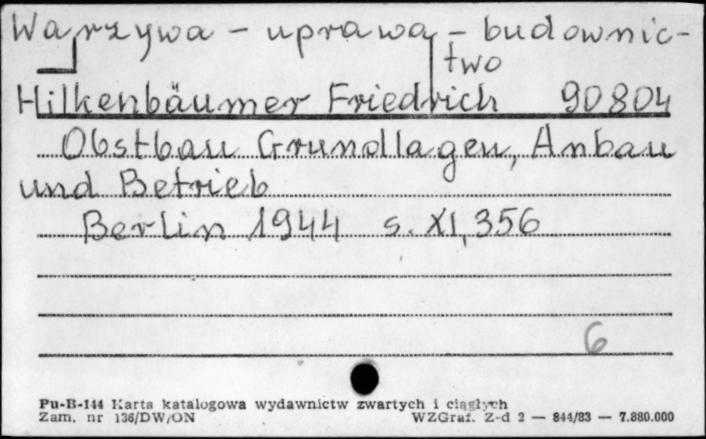 Warzywa - uprawa - budownic-
two
Hilkenbäumer Friedrich 90804
Obstbau Grundlagen, Anbau
und Betrieb
Berlin 1944 s. XI, 356
6
Pu-B-144 Karta katalogowa wydawnictw zwartych i ciągłych
Zam. nr 136/DW/ON WZGraf. Z-d 2 — 844/83 — 7.880.000